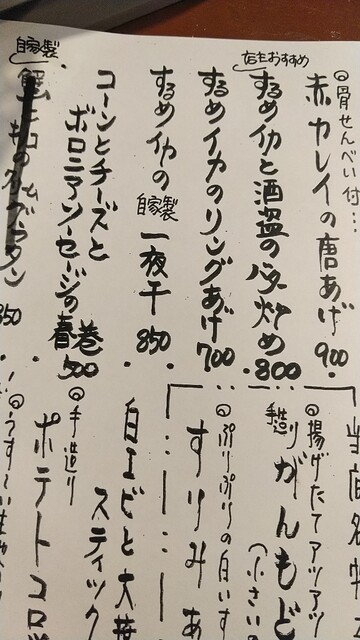 ◎骨せんべい付…
赤カレイの唐あげ 900
店主おすすめ
するめイカと酒盗のバター炒め 800
するめイカのリングあげ 700
するめイカの自家製一夜干 850
コーンとチーズと
ボロニアソーセージの春巻 500
自家製
グラタン
850
◎揚げたてアツアツ
手造りがんもど
(小さい
◎ぷりぷりの白いす
すりみあ
白エビと大
スティック
◎手造り
ポテトコロ